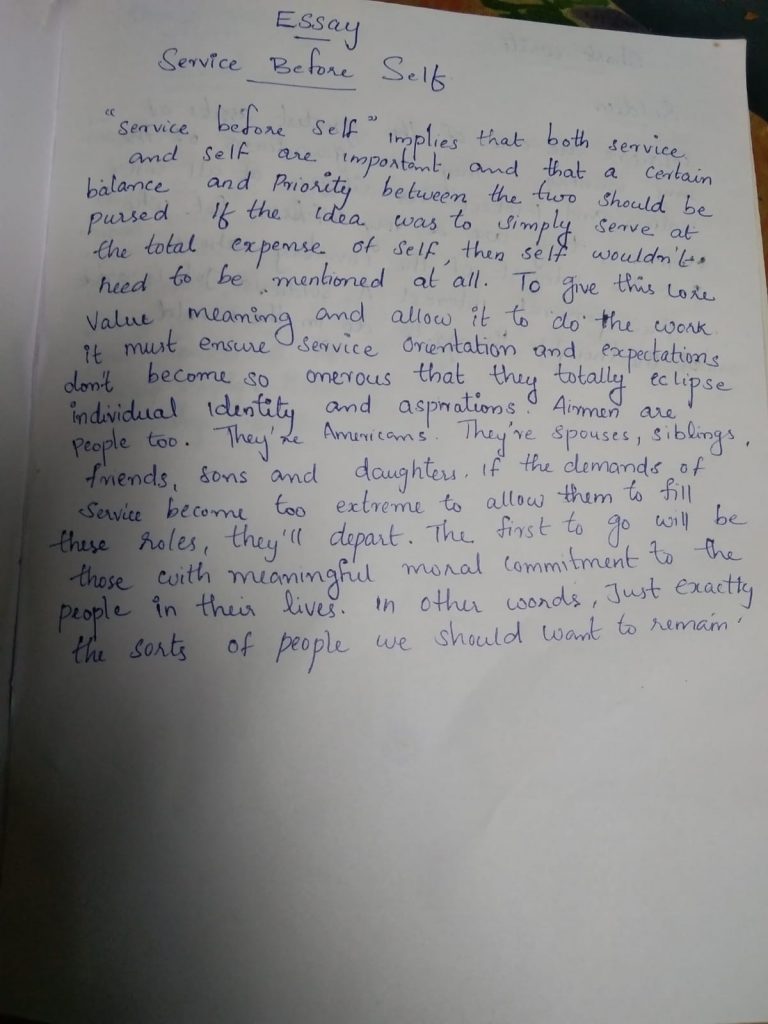 ESSay
Service Before Self
"Service before self" implies that both service
and self are important, and that a certain
balance and Priority between the two should be
pursed If the idea was to simply serve at
the total expense of self, then self wouldn't
need to be mentioned at all. To give this core
value meaning and allow it to do the work
it must ensure service orientation and expectations
don't become so onerous that they totally eclipse
individual identity and aspirations. Airmen are
People too. They're Americans. They're spouses, siblings,
friends, sons and daughters. if the demands of
Service become too extreme to allow them to fill
these roles, they'll depart. The first to go will be
those with meaningful moral commitment to the
people in their lives. in other words, Just exactly
the sorts of people we should want to remain.